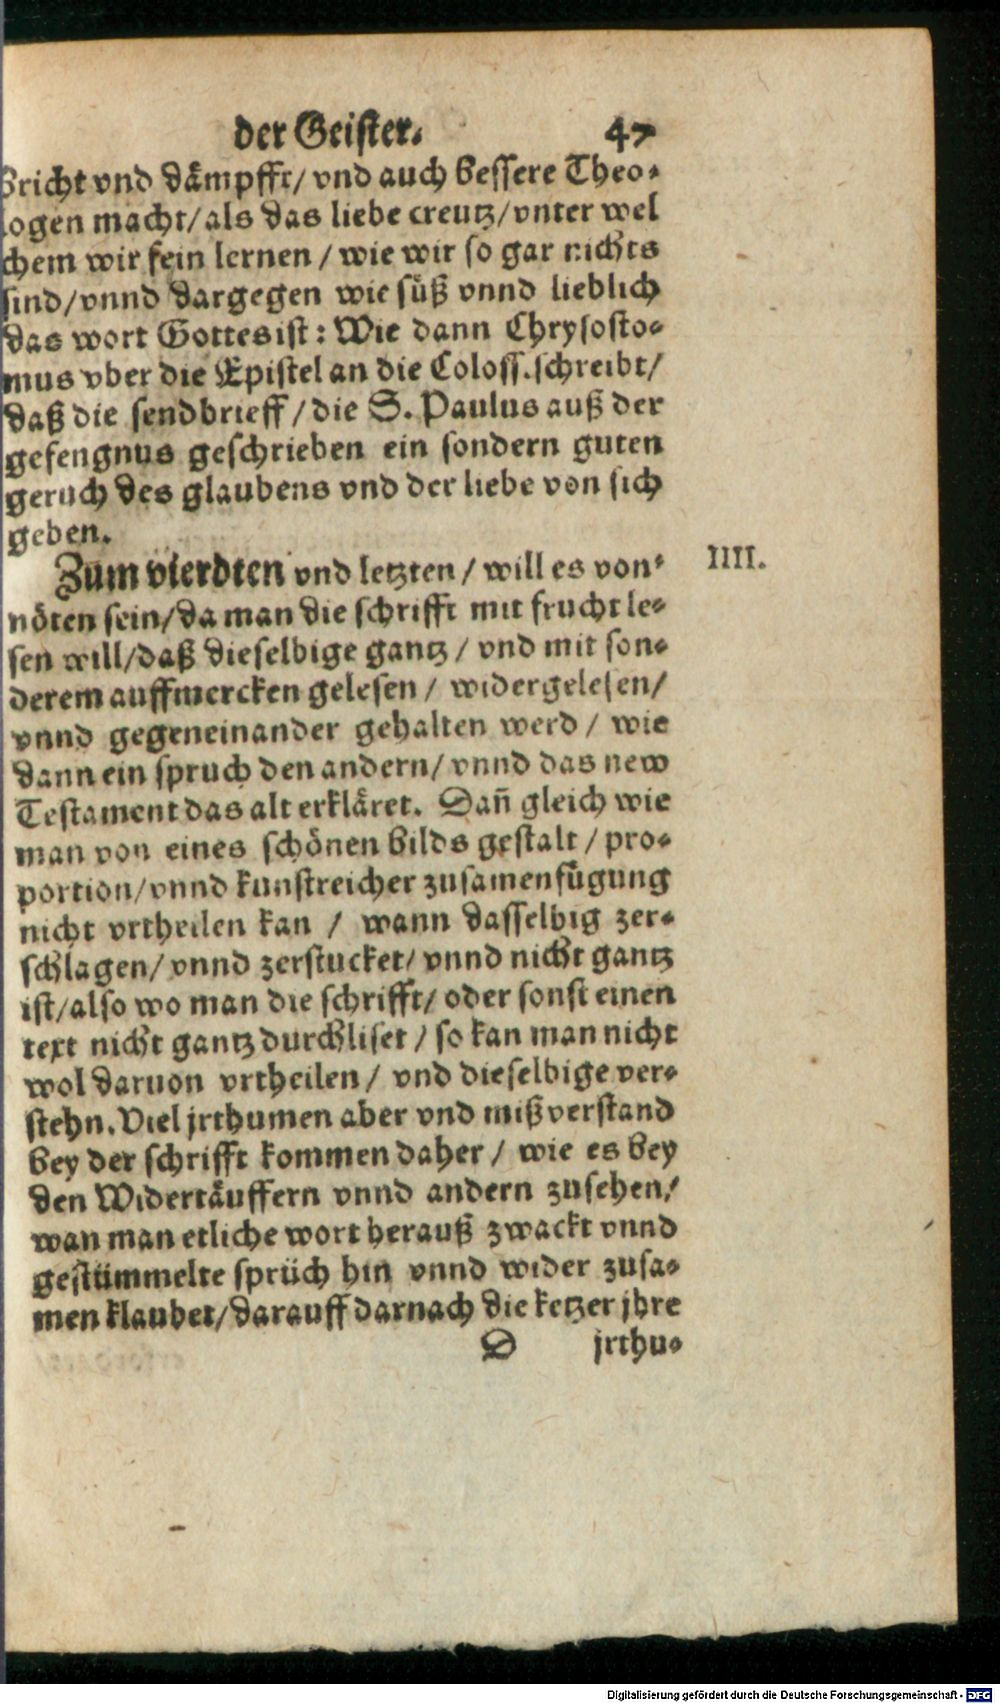 der Geister. 47
bricht vnd dämpfft/ vnd auch bessere Theo-
logen macht/ als das liebe creutz/ vnter wel
chem wir fein lernen / wie wir so gar nichts
sind/ vnnd dargegen wie süß vnnd lieblich
das wort Gottes ist: Wie dann Chrysosto-
mus vber die Epistel an die Coloss. schreibt/
daß die sendbrieff / die S. Paulus auß der
gefengnus geschrieben ein sondern guten
geruch des glaubens vnd der liebe von sich
geben.
Zum vierdten vnd letzten / will es von- IIII.
nöten sein/ da man die schrifft mit frucht le-
sen will/ daß dieselbige gantz / vnd mit son-
derem auffmercken gelesen / widergelesen/
vnnd gegeneinander gehalten werd / wie
dann ein spruch den andern/ vnnd das new
Testament das alt erkläret. Dañ gleich wie
man von eines schönen bilds gestalt / pro-
portion/ vnnd kunstreicher zusamenfügung
nicht vrtheilen kan / wann dasselbig zer-
schlagen/ vnnd zerstucket/ vnnd nicht gantz
ist/ also wo man die schrifft/ oder sonst einen
text nicht gantz durchliset / so kan man nicht
wol daruon vrtheilen / vnd dieselbige ver-
stehn. Viel jrthumen aber vnd mißverstand
bey der schrifft kommen daher / wie es bey
den Widertäuffern vnnd andern zusehen/
wan man etliche wort herauß zwackt vnnd
gestümmelte sprüch hin vnnd wider zusa-
men klaubet/ darauff darnach die ketzer jhre
D jrthu-
Digitalisierung gefördert durch die Deutsche Forschungsgemeinschaft - DFG